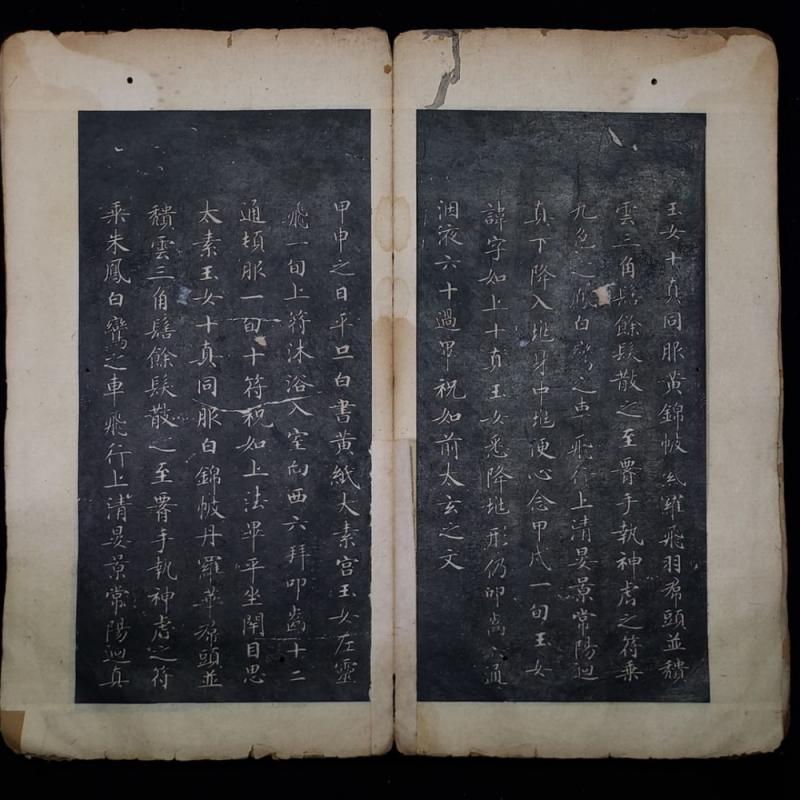 玉女十真同服黃錦帔紫羅飛羽帬頭並頹
雲三角髻餘髮散之至署手執神虎之符乘
九色之鳳白鸞之車飛行上清晏景常陽迴
真下降入坐身中坐便心念甲戌一旬玉女
諱字如上十真玉女悉降坐形仍叩齒六通
咽液六十過畢祝如前太玄之文
甲申之日平旦白書黃紙太素宮玉女左靈
飛一旬上符沐浴入室向西六拜叩齒十二
通頓服一旬十符祝如上法畢平坐閉目思
太素玉女十真同服白錦帔丹羅華帬頭並
頹雲三角髻餘髮散之至署手執神虎之符
乘朱鳳白鸞之車飛行上清晏景常陽迴真